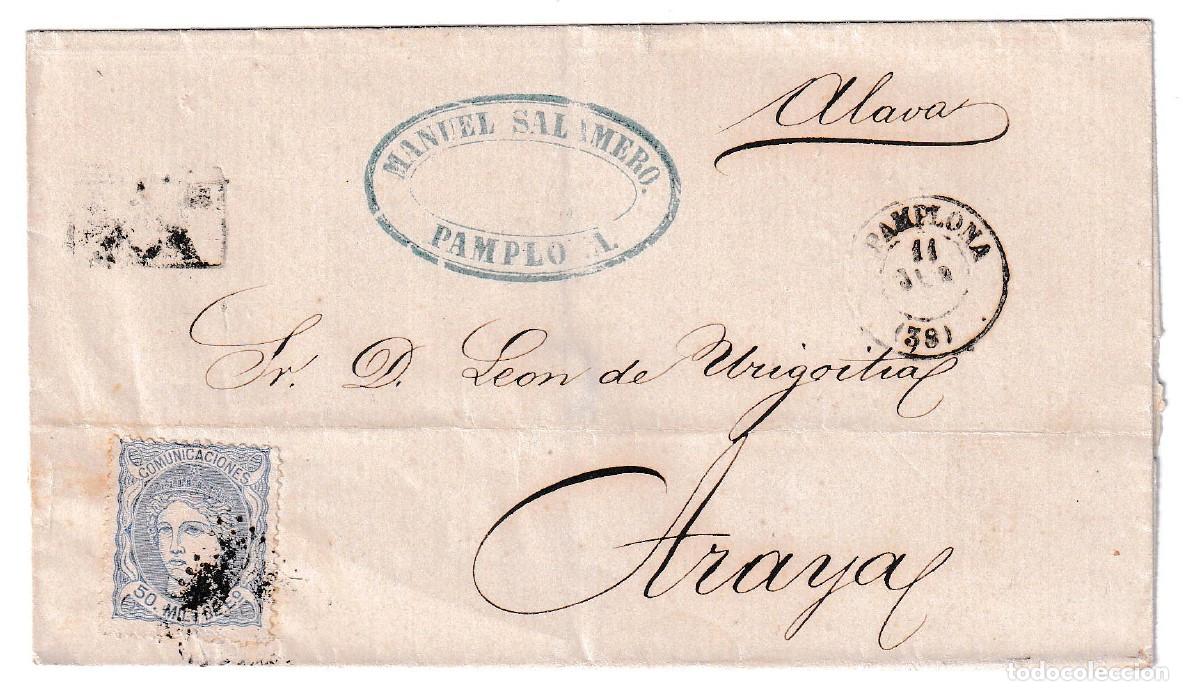 Alava
MANUEL SALAMERO.
PAMPLONA.
PAMPLONA
11
(38)
Sr. D. Leon de Urigoitia
Araya
COMUNICACIONES
50. MILS DE Eº
todocoleccion